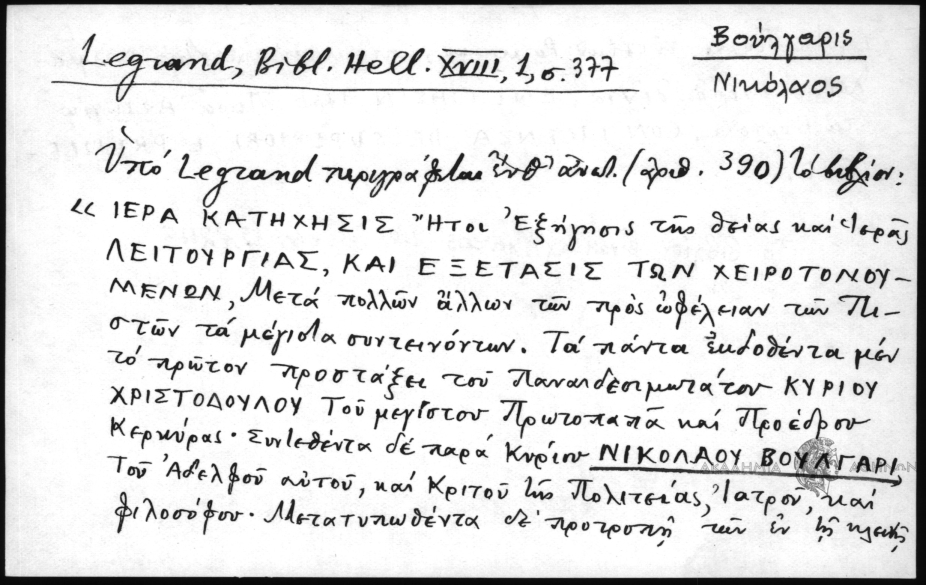 Βούλγαρις
Νικόλαος
Legrand, Bibl. Hell. XVIII, 1, σ. 377
Ὑπό Legrand περιγράφεται ἐνθ' ἀνωτ. (ἀριθ. 390) τό βιβλίον:
« ΙΕΡΑ ΚΑΤΗΧΗΣΙΣ Ἤτοι Ἐξήγησις τῆς θείας καί Ἱερᾶς
ΛΕΙΤΟΥΡΓΙΑΣ, ΚΑΙ ΕΞΕΤΑΣΙΣ ΤΩΝ ΧΕΙΡΟΤΟΝΟΥ-
ΜΕΝΩΝ, Μετά πολλῶν ἄλλων τῶν πρός ὠφέλειαν τῶν Πι-
στῶν τά μέγιστα συντεινόντων. Τά πάντα ἐκδοθέντα μέν
τό πρῶτον προστάξει τοῦ Παναιδεσιμωτάτου ΚΥΡΙΟΥ
ΧΡΙΣΤΟΔΟΥΛΟΥ Τοῦ μεγίστου Πρωτοπαπᾶ καί Προέδρου
Κερκύρας· Συντεθέντα δέ παρά Κυρίου ΝΙΚΟΛΑΟΥ ΒΟΥΛΓΑΡΙ
Τοῦ Ἀδελφοῦ αὐτοῦ, καί Κριτοῦ τῆς Πολιτείας, Ἰατροῦ, καί
φιλοσόφου· Μετατυπωθέντα δέ προτροπῇ τῶν ἐν τῇ κλεινῇ
ΑΚΑΔΗΜΙΑ